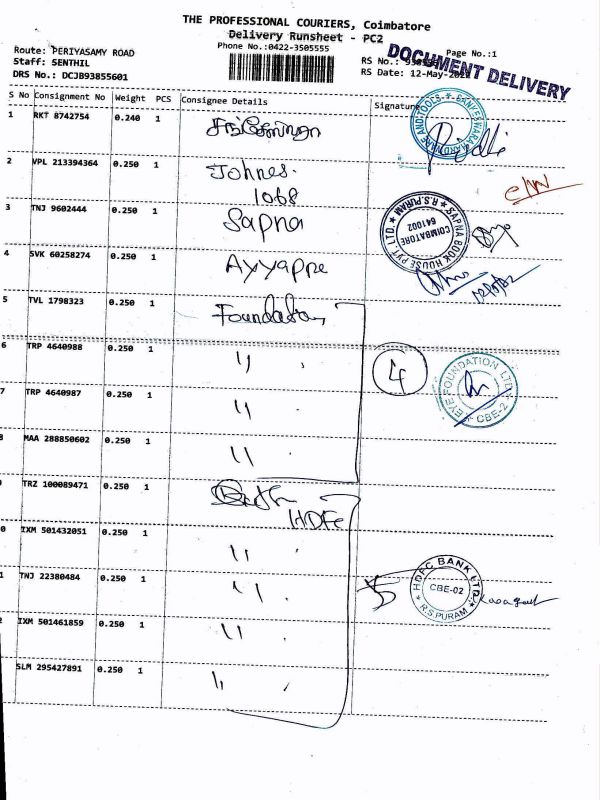 THE PROFESSIONAL COURIERS, Coimbatore
Delivery Runsheet - PC2
Phone No.:0422-3505555
Page No.:1
Route: PERIYASAMY ROAD
Staff: SENTHIL
DRS No.: DCJB93855601
RS No.:
RS Date: 12-May-
DOCUMENT DELIVERY
S No Consignment No Weight PCS Consignee Details Signature
1 RKT 8742754 0.240 1
2 VPL 213394364 0.250 1 Johnes. 1068
3 TNJ 9602444 0.250 1 Sapna
SAPNA BOOK HOUSE PVT LTD. * R.S.PURAM *
COIMBATORE
641002
4 SVK 60258274 0.250 1 Ayyapne
5 TVL 1798323 0.250 1 Foundation
6 TRP 4640988 0.250 1 "
4
EYE FOUNDATION LTD
CBE-2
7 TRP 4640987 0.250 1 "
8 MAA 288850602 0.250 1 "
TRZ 100089471 0.250 1 HDFC
0 IXM 501432051 0.250 1 "
1 TNJ 22380484 0.250 1 "
5
HDFC BANK LTD.
CBE-02
* R.S.PURAM *
2 IXM 501461859 0.250 1 "
SLM 295427891 0.250 1 "